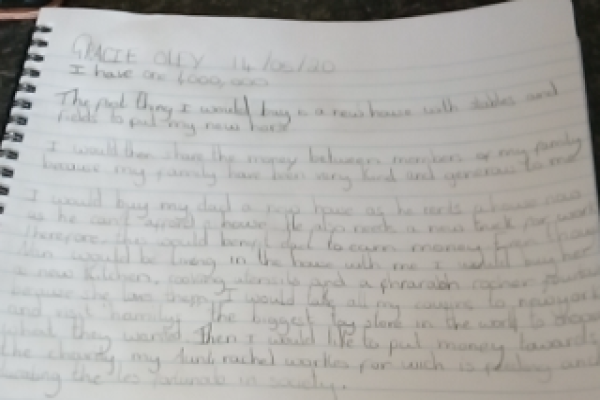 GRACIE OLEY 14/05/20
I have one 1,000,000
The first thing I would buy is a new house with stables and
fields to put my new horse
I would then share the money between members of my family
because my family have been very kind and generous to me
I would buy my dad a new house as he rents a house now
as he can't afford a house. He also needs a new truck for work
Therefore, this would benefit dad to earn money
would be living in the house with me I would buy her
a new kitchen, cooking utensils and a
because she loves them. I would take all my cousins to newyork
and visit hamilys the biggest toy store in the world to
what they wanted. Then I would like to put money towards
the charity my Aunt rachel workes for wich is feeding and
the les fortunate in society.